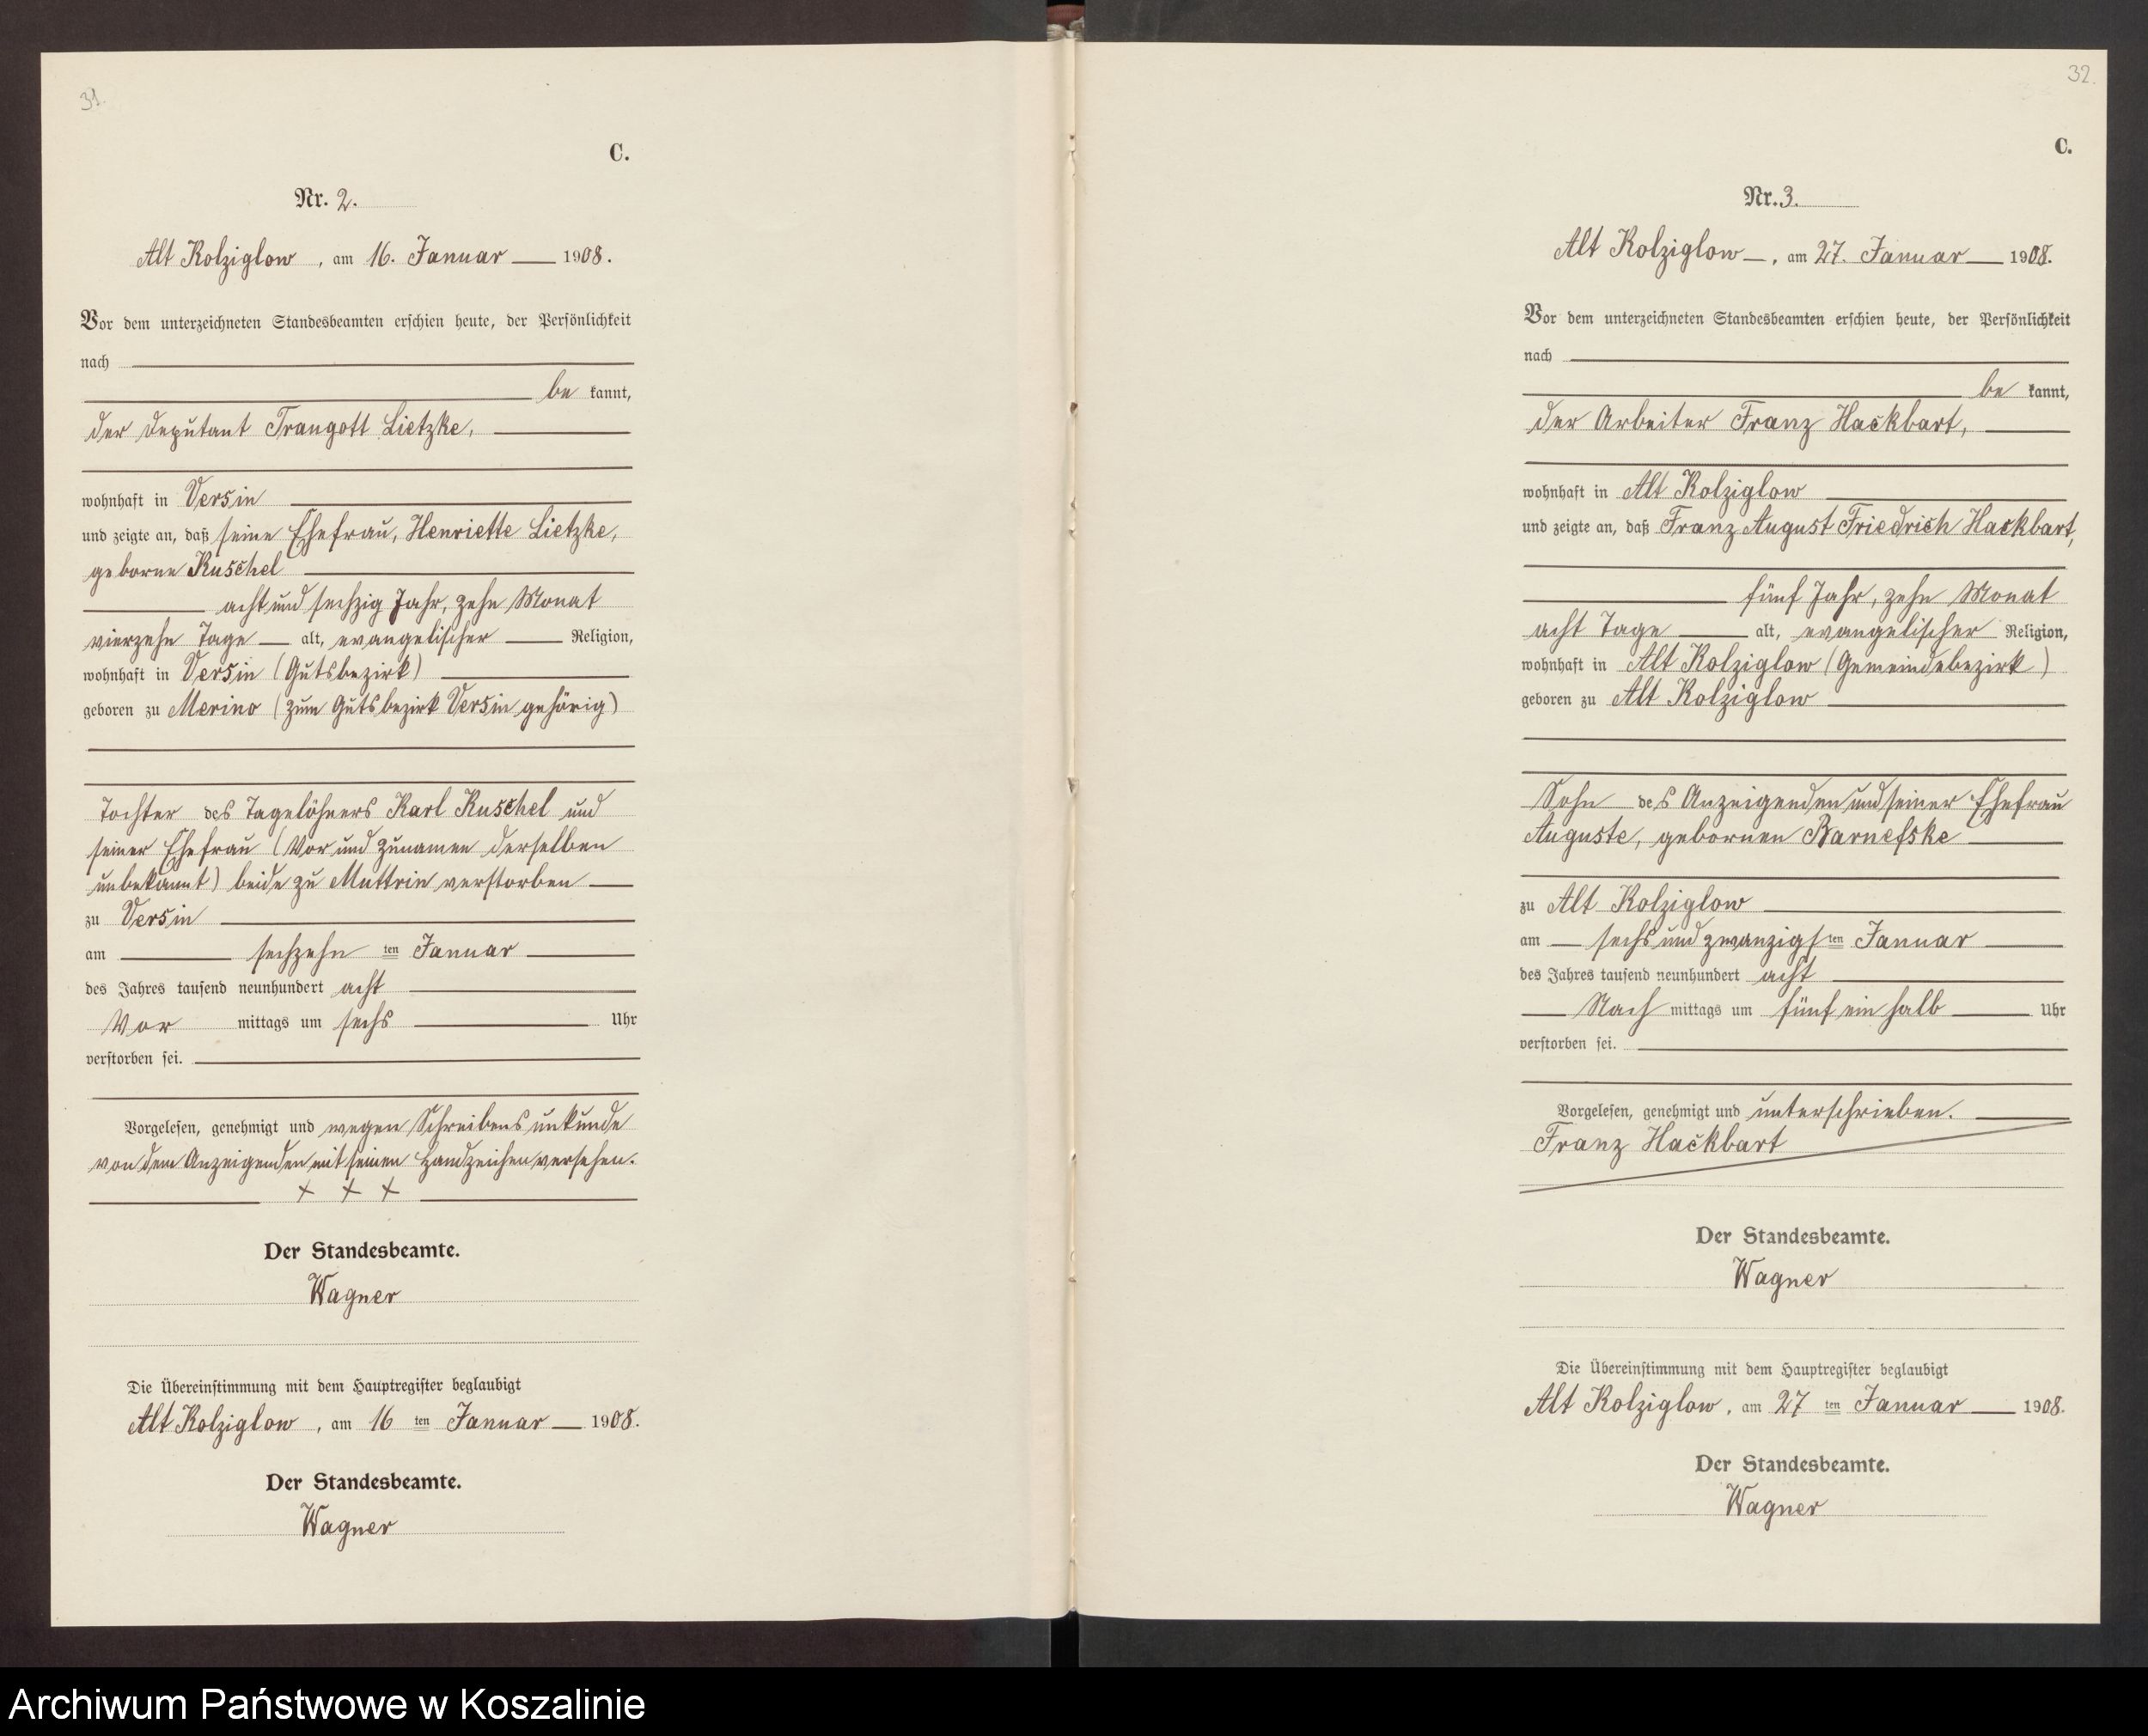 31.
C.
Nr. 2.
Alt Kolziglow, am 16. Januar 1908.
Vor dem unterzeichneten Standesbeamten erschien heute, der Persönlichkeit
nach
be kannt,
der Deputant Traugott Lietzke,
wohnhaft in Versin
und zeigte an, daß seine Ehefrau, Henriette Lietzke,
geborne Kuschel
acht und sechzig Jahr, zehn Monat
vierzehn Tage alt, evangelischer Religion,
wohnhaft in Versin (Gutsbezirk)
geboren zu Merino (zum Gutsbezirk Versin gehörig)
Tochter des Tagelöhners Karl Kuschel und
seiner Ehefrau (Vor und Zunamen derselben
unbekannt) beide zu Muttrin verstorben
zu Versin
am sechzehn ten Januar
des Jahres tausend neunhundert acht
Vor mittags um sechs Uhr
verstorben sei.
Vorgelesen, genehmigt und wegen Schreibensunkunde
von dem Anzeigenden mit seinen Handzeichen versehen.
+ + +
Der Standesbeamte.
Wagner
Die Übereinstimmung mit dem Hauptregister beglaubigt
Alt Kolziglow, am 16 ten Januar 1908.
Der Standesbeamte.
Wagner
32.
C.
Nr. 3.
Alt Kolziglow, am 27. Januar 1908.
Vor dem unterzeichneten Standesbeamten erschien heute, der Persönlichkeit
nach
be kannt,
der Arbeiter Franz Hackbart,
wohnhaft in Alt Kolziglow
und zeigte an, daß Franz August Friedrich Hackbart,
fünf Jahr, zehn Monat
acht Tage alt, evangelischer Religion,
wohnhaft in Alt Kolziglow (Gemeindebezirk)
geboren zu Alt Kolziglow
Sohn des Anzeigenden und seiner Ehefrau
Auguste, gebornen Barnefske
zu Alt Kolziglow
am sechs und zwanzigs ten Januar
des Jahres tausend neunhundert acht
Nach mittags um fünf ein halb Uhr
verstorben sei.
Vorgelesen, genehmigt und unterschrieben.
Franz Hackbart
Der Standesbeamte.
Wagner
Die Übereinstimmung mit dem Hauptregister beglaubigt
Alt Kolziglow, am 27 ten Januar 1908.
Der Standesbeamte.
Wagner
Archiwum Państwowe w Koszalinie